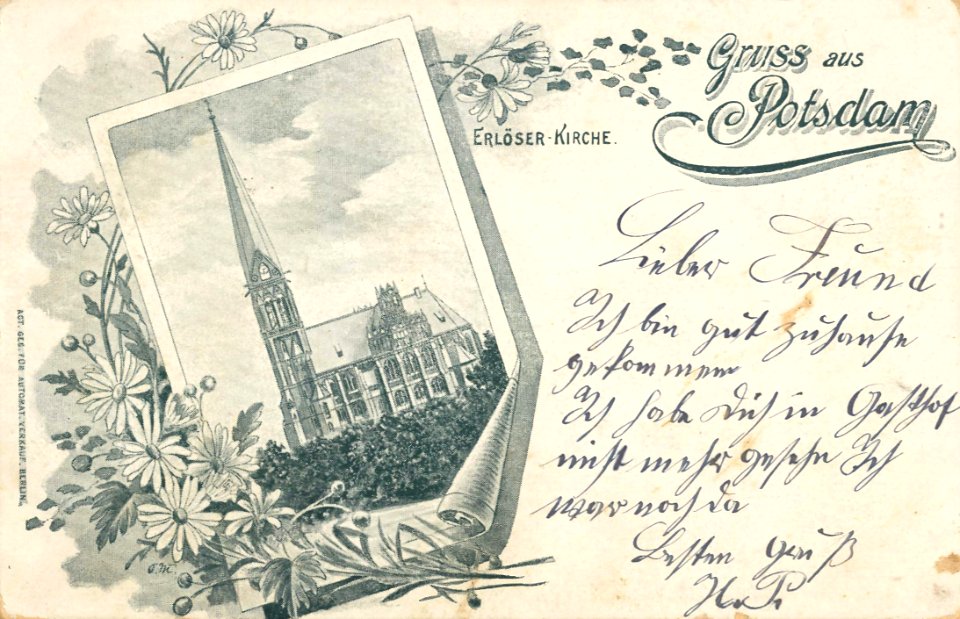 Gruss aus
Potsdam
ERLÖSER-KIRCHE.
Lieber Freund
Ich bin gut zuhause
gekommen
Ich habe Dich in Gasthof
nicht mehr gesehn Ich
war noch da
Besten Gruß
ACT. GES. FÜR AUTOMAT. VERKAUF. BERLIN.